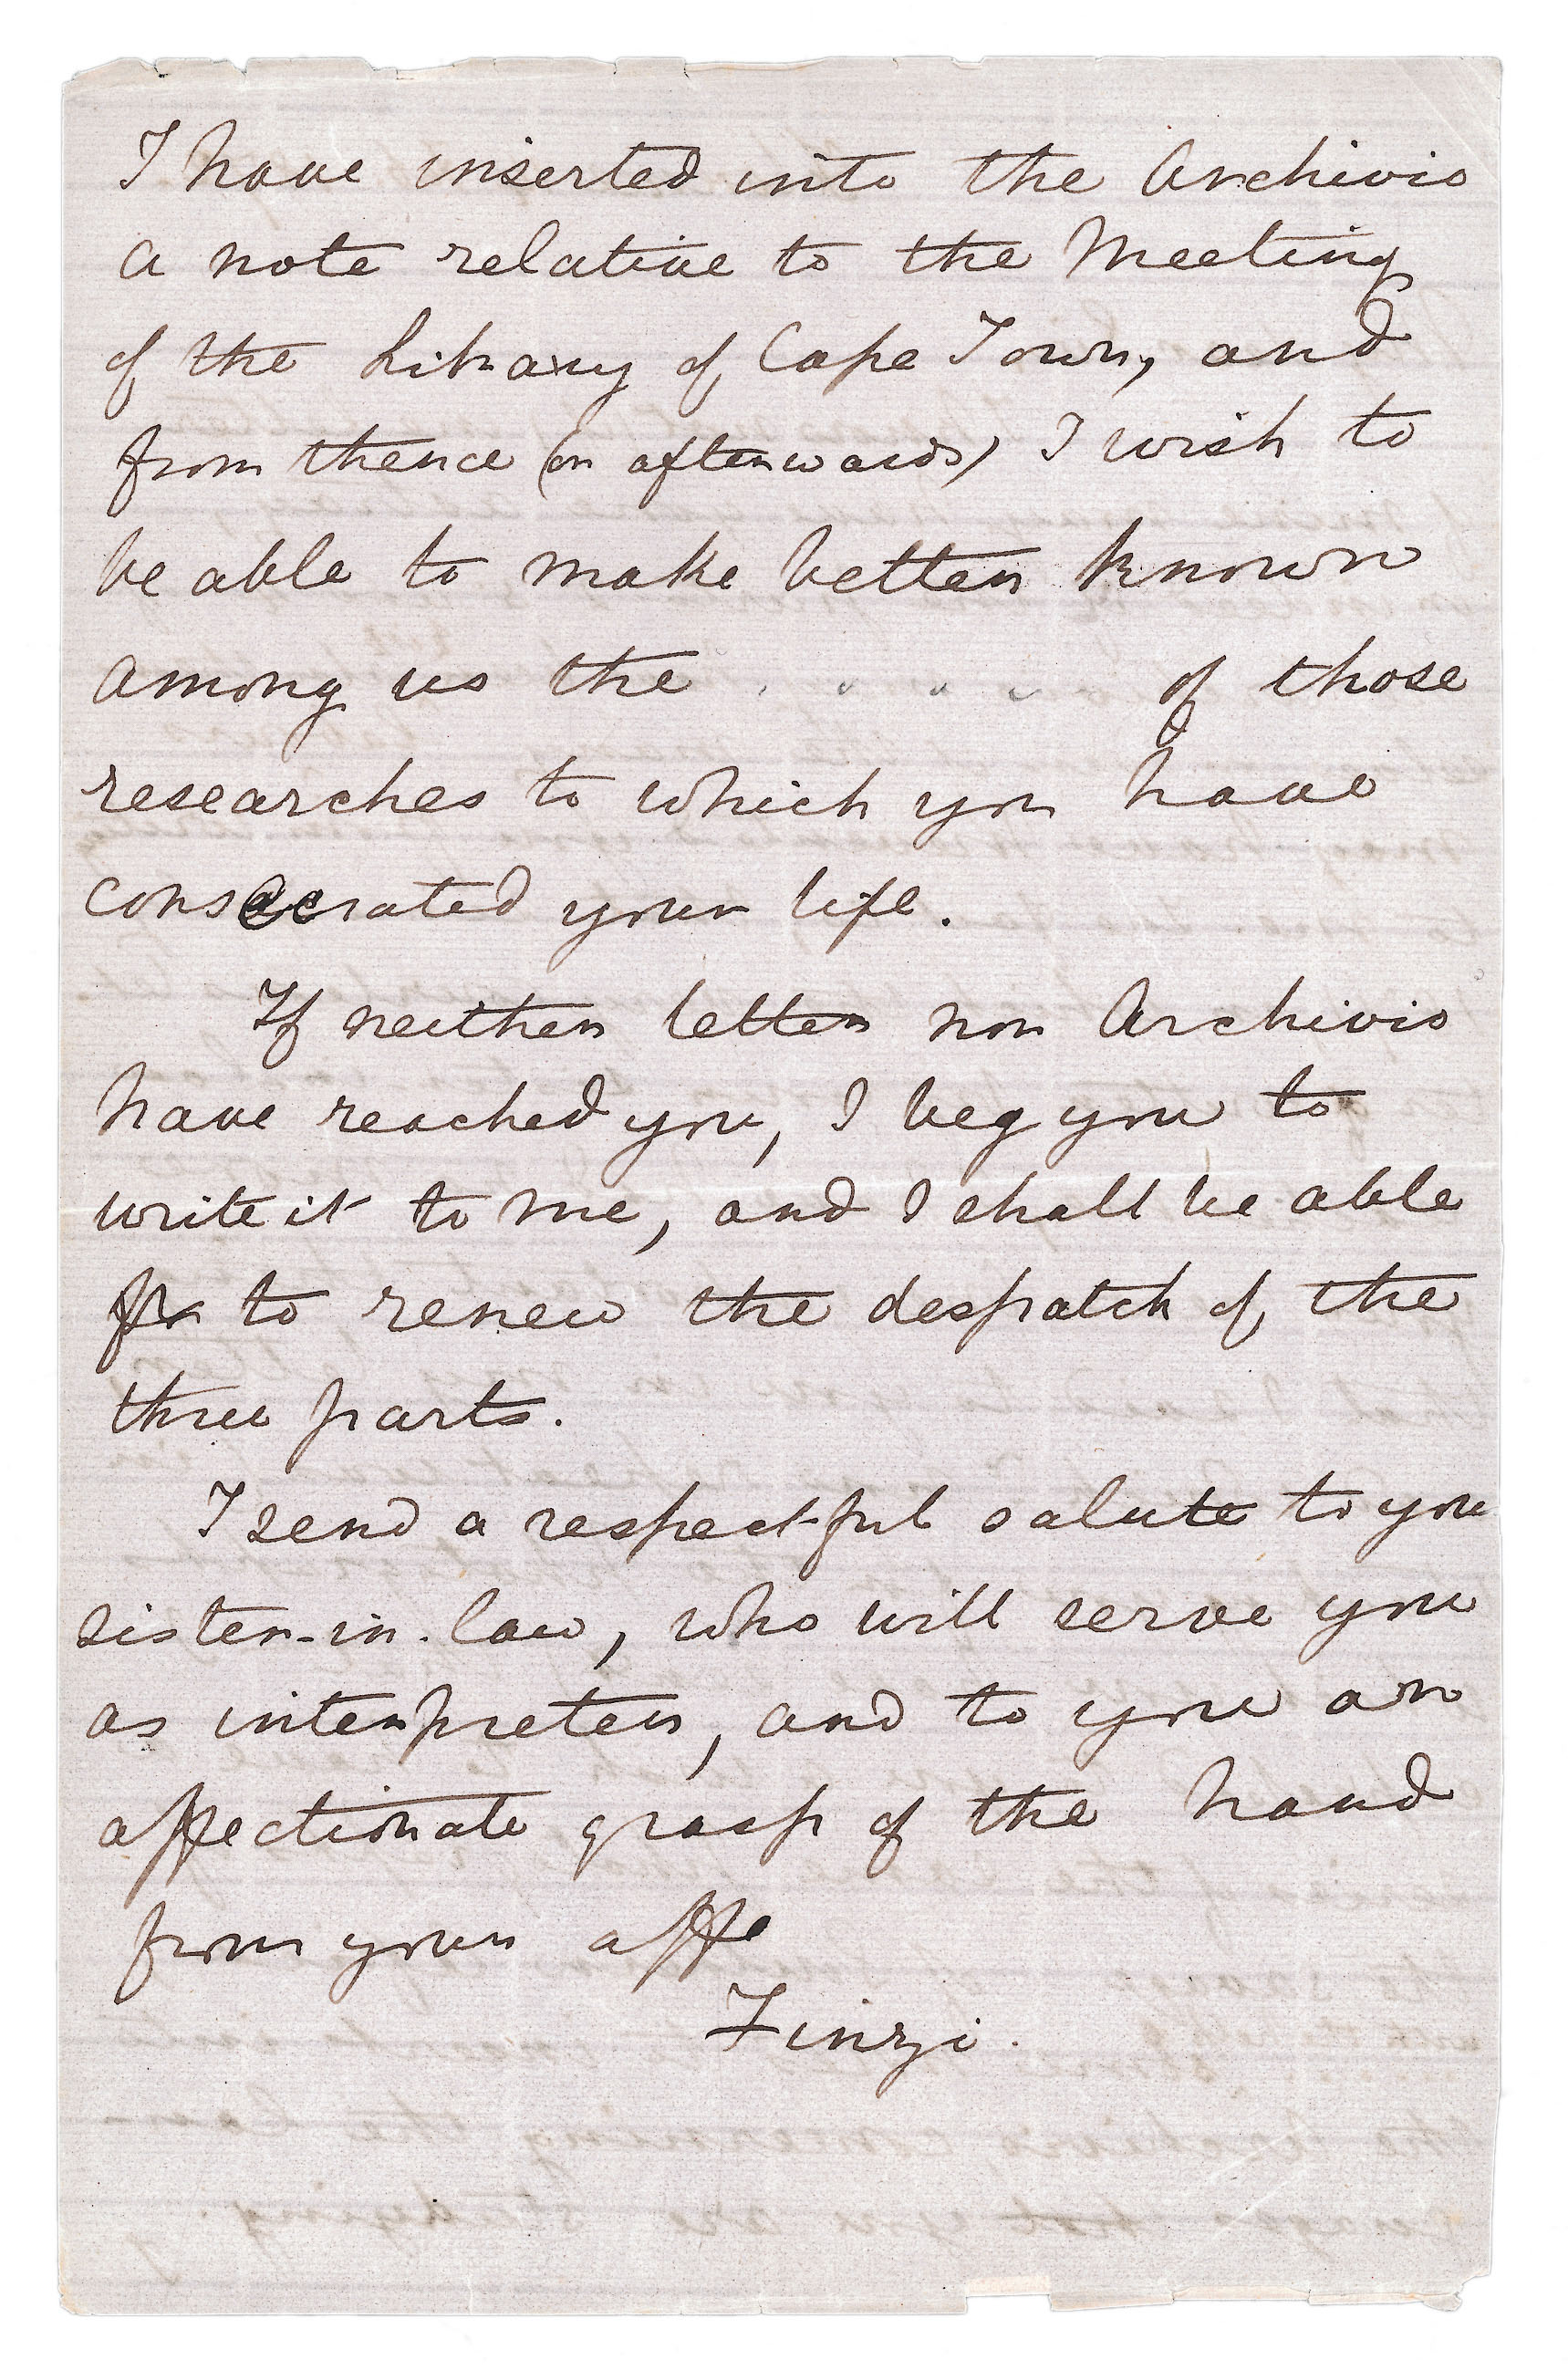 I have inserted into the Archivio
a note relative to the Meeting
of the Library of Cape Town, and
from thence (or afterwards) I wish to
be able to make better known
among us the . . . . of those
researches to which you have
consecrated your life.
If neither letter nor Archivio
have reached you, I beg you to
write it to me, and I shall be able
to renew the despatch of the
three parts.
I send a respectful salute to you
sister-in-law, who will serve you
as interpreter, and to you an
affectionate grasp of the hand
from your affe
Finzi.